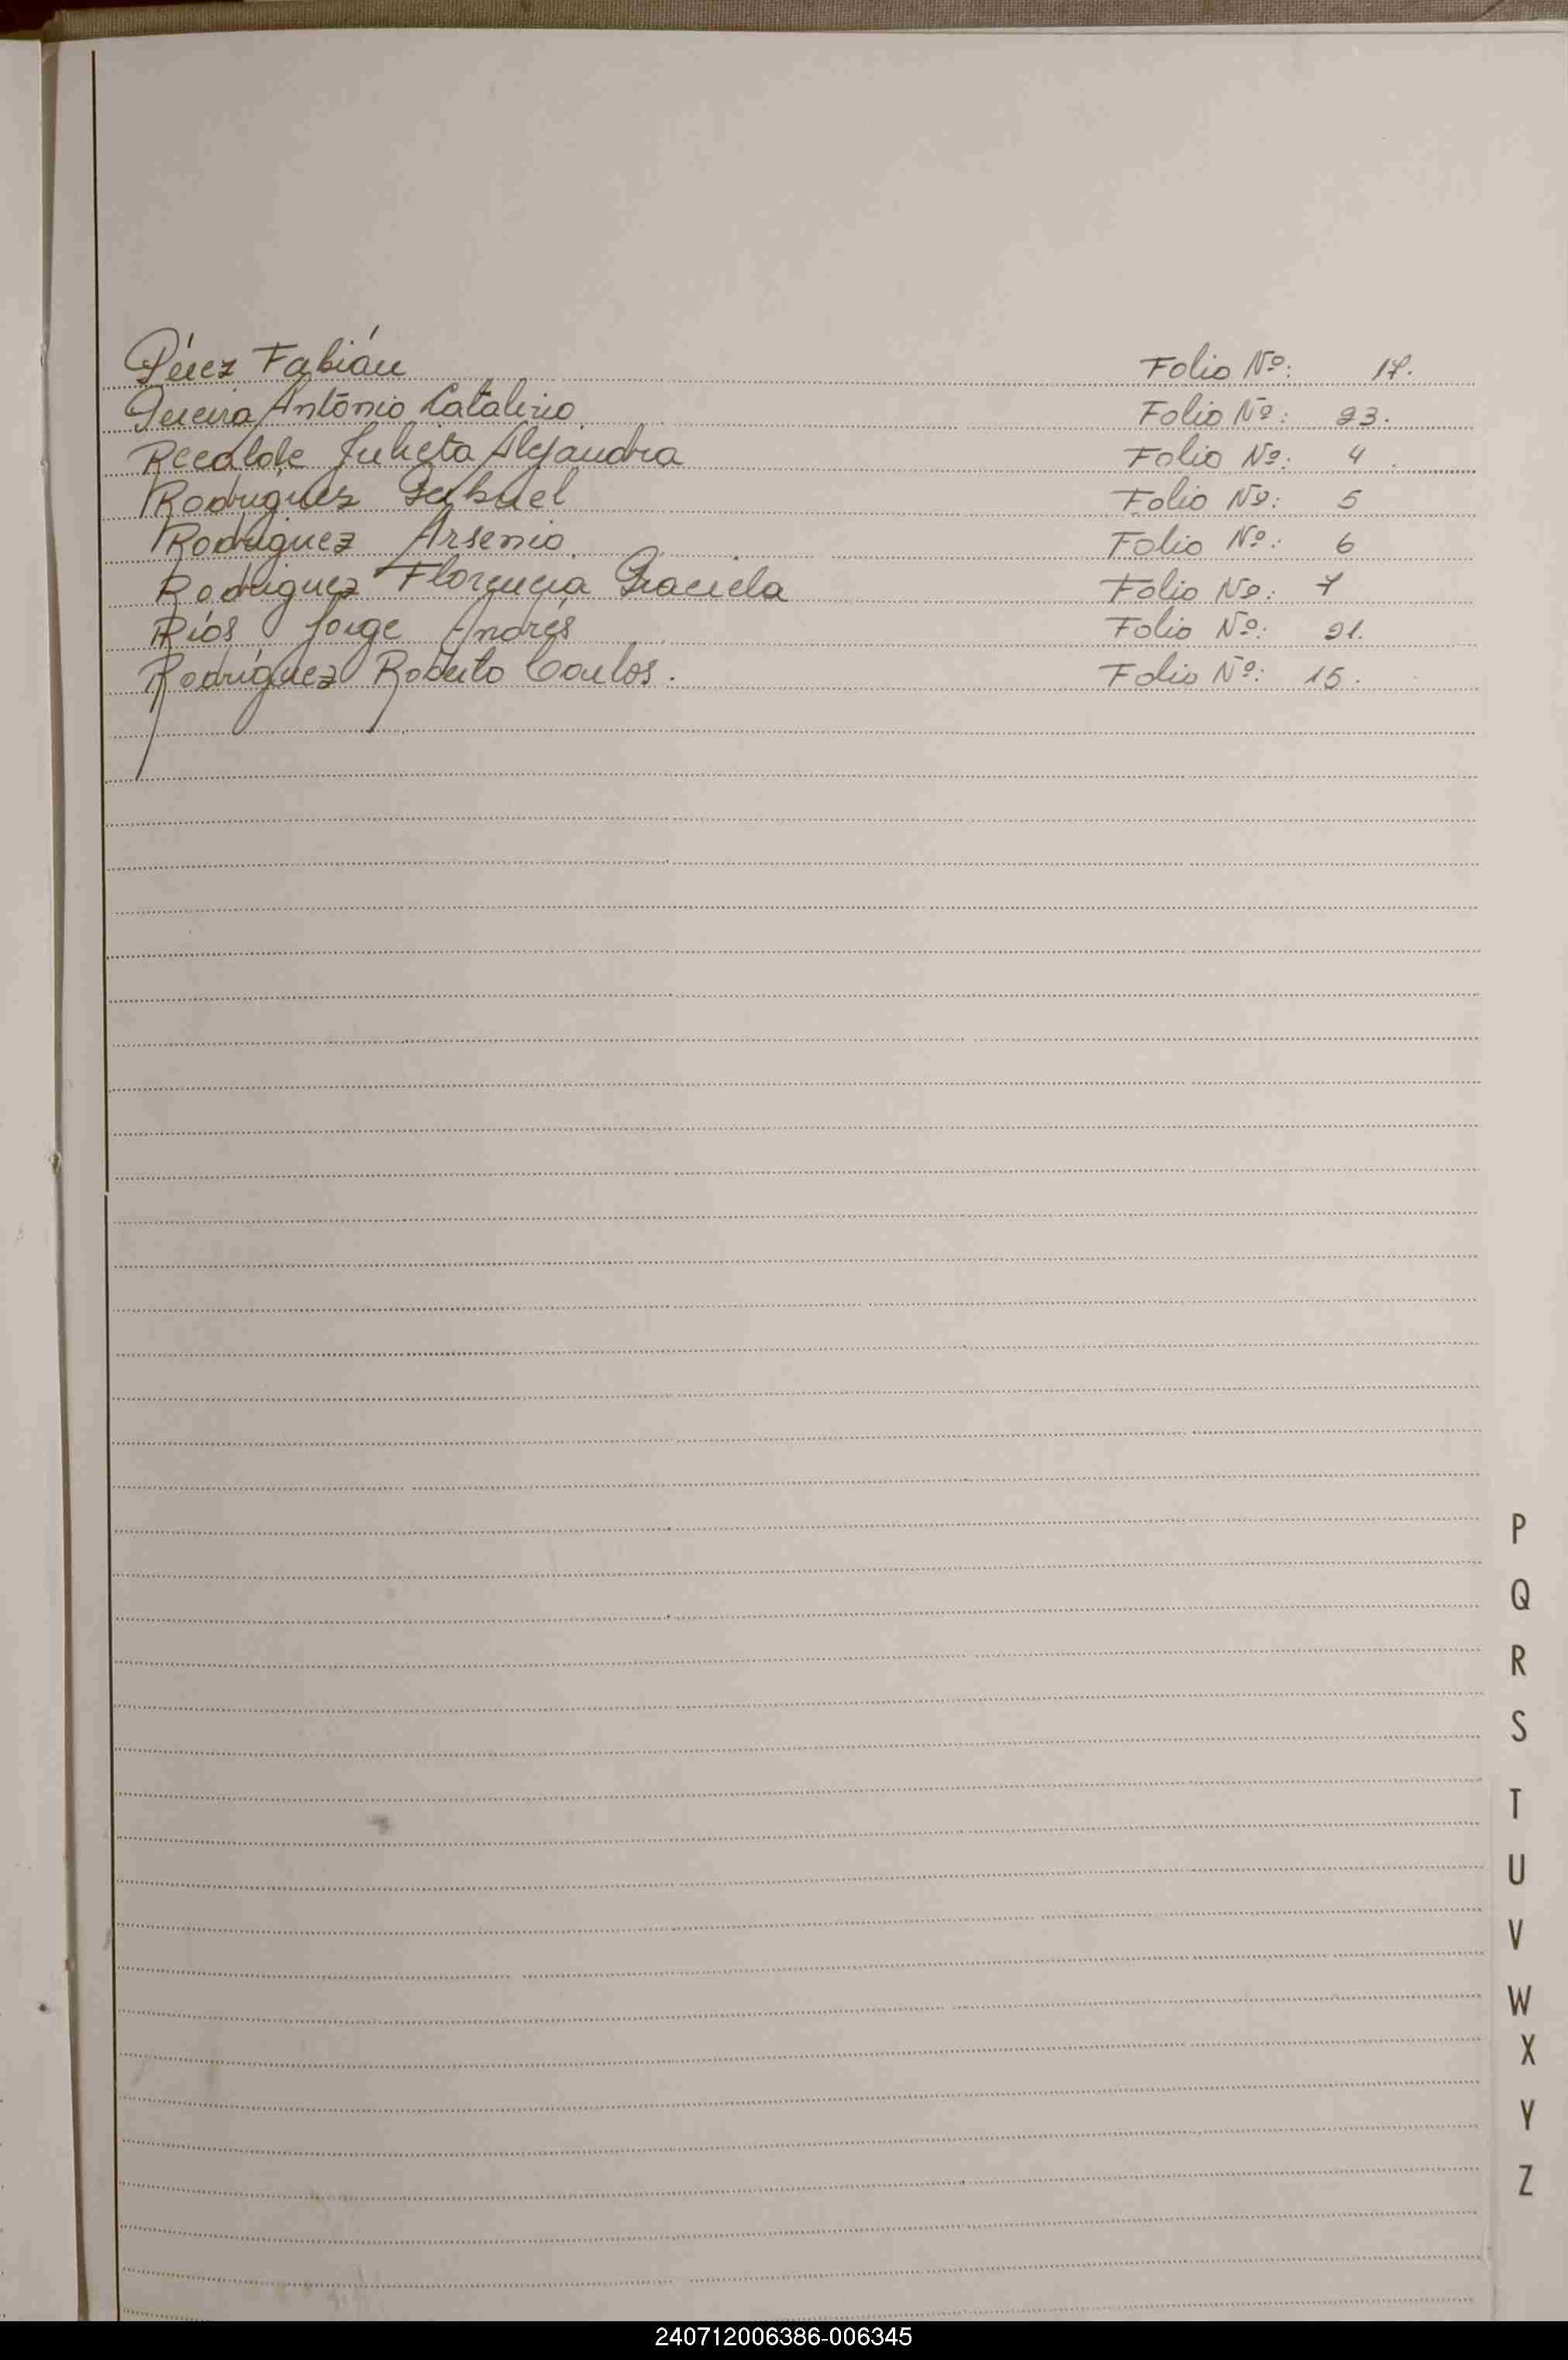 Pérez Fabián Folio Nº: 17.
Pereira Antonio Catalino Folio Nº: 23.
Recalde Julieta Alejandra Folio Nº: 4.
Rodriguez Gabriel Folio Nº: 5
Rodriguez Arsenio. Folio Nº: 6
Rodriguez Florencia Graciela Folio Nº: 7
Ríos Jorge Andrés Folio Nº: 21.
Rodríguez Roberto Carlos. Folio Nº: 15.
P
Q
R
S
T
U
V
W
X
Y
Z
240712006386-006345